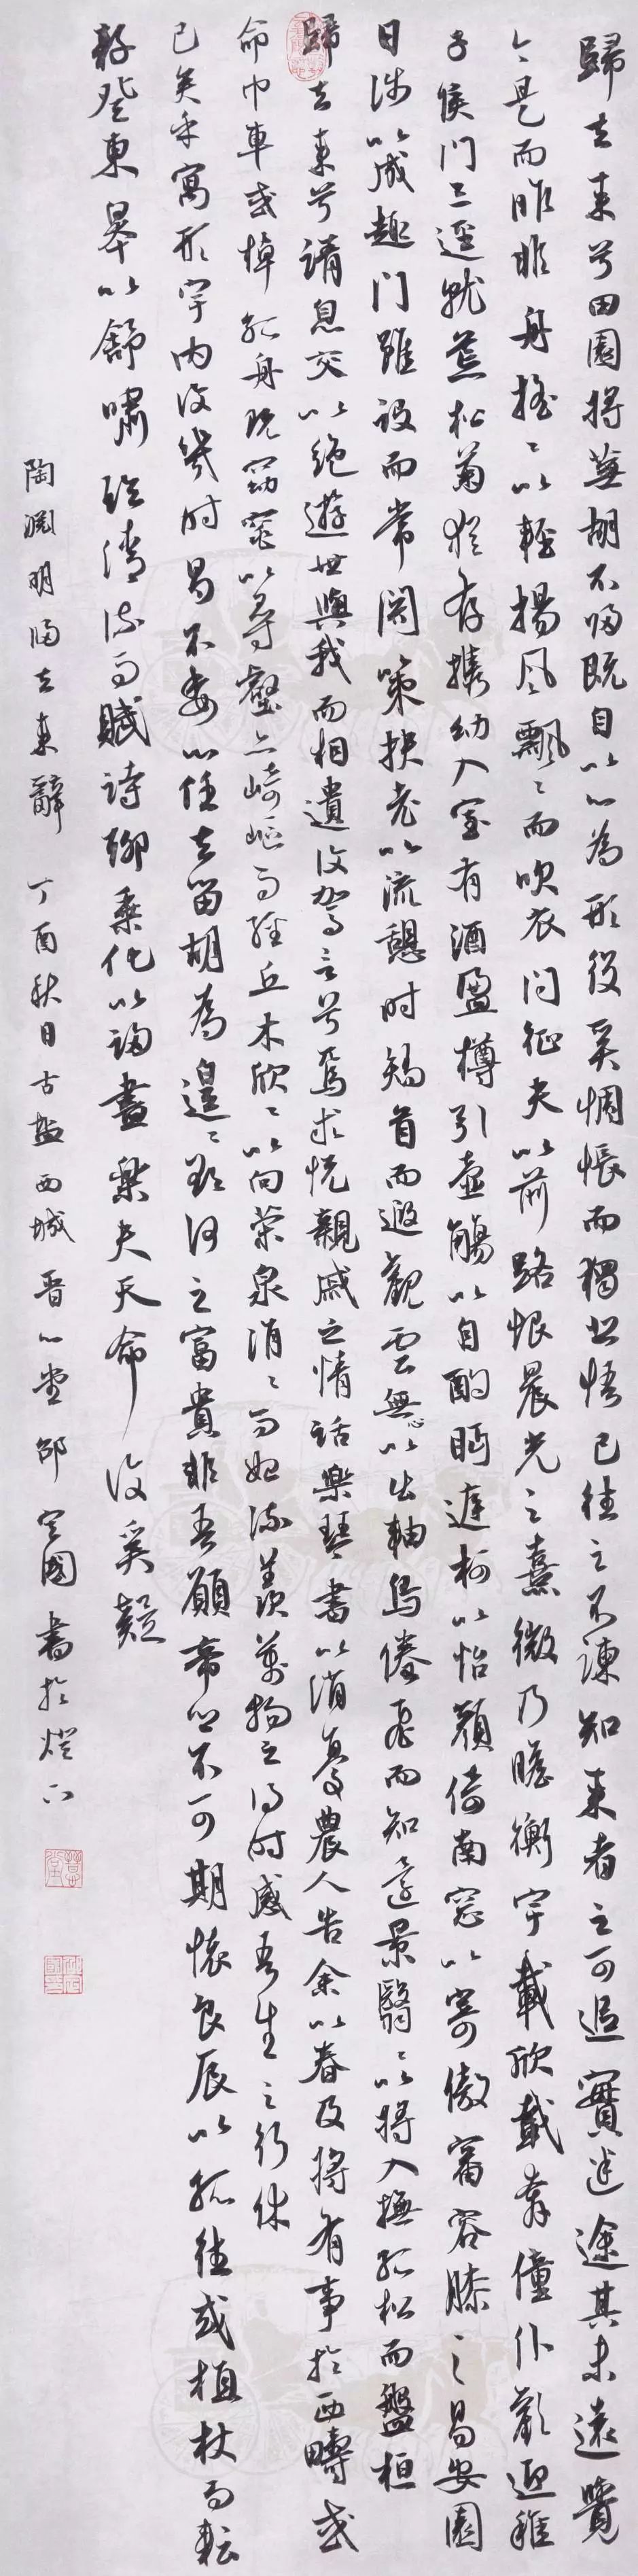 歸去來兮田園將蕪胡不歸既自以心為形役奚惆悵而獨悲悟已往之不諫知來者之可追實迷途其未遠覺
今是而昨非舟搖〻以輕揚風飄〻而吹衣問征夫以前路恨晨光之熹微乃瞻衡宇載欣載奔僮仆歡迎稚
子候門三逕就荒松菊猶存攜幼入室有酒盈樽引壺觴以自酌眄庭柯以怡顏倚南窓以寄傲審容膝之易安園
日涉以成趣門雖設而常關策扶老以流憩時矯首而遐觀雲無心以出岫鳥倦飛而知還景翳〻以將入撫孤松而盤桓
歸去來兮請息交以絕遊世與我而相遺復駕言兮焉求悅親戚之情話樂琴書以消憂農人告余以春及將有事於西疇或
命巾車或棹孤舟既窈窕以尋壑亦崎嶇而經丘木欣〻以向榮泉涓〻而始流羨萬物之得時感吾生之行休
已矣乎寓形宇內復幾時曷不委心任去留胡為遑〻欲何之富貴非吾願帝鄉不可期懷良辰以孤往或植杖而耘
耔登東皋以舒嘯臨清流而賦詩聊乘化以歸盡樂夫天命復奚疑
陶淵明歸去來辭 丁酉秋日古鹽西城晉心堂邵定國書於燈下